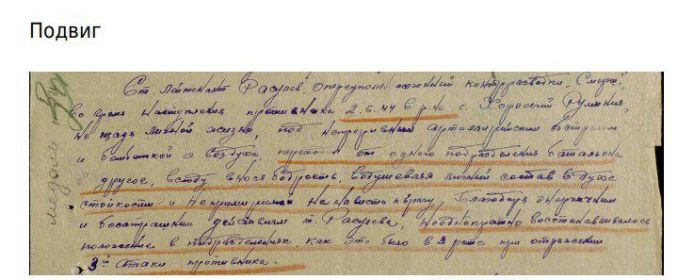 Подвиг
Ст. Лейтенант Расулев, оперуполномоченный контрразведки "Смерш"
во время наступления противника 2.6.44 в р-не с. Хорлешти Румыния,
не щадя личной жизни, под непрерывным артиллерийским обстрелом
и бомбежкой с воздуха, переходя от одного подразделения батальона
в другое, всюду вносил бодрость, воодушевляя личный состав в духе
стойкости и непримиримой ненависти к врагу. Благодаря энергичным
и бесстрашным действиям т. Расулева, неоднократно восстанавливалось
положение в подразделениях, как это было в 9 роте при отражении
3й атаки противника.
медаль